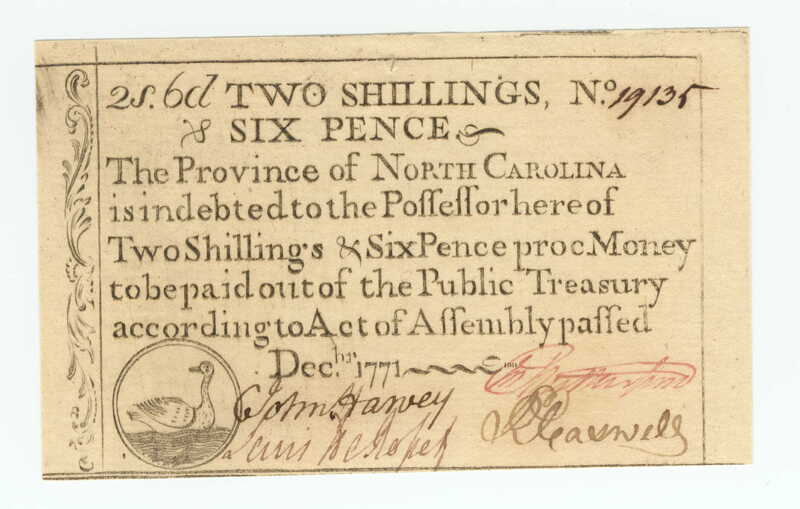 2s. 6d TWO SHILLINGS, No. 19135
& SIX PENCE
The Province of NORTH CAROLINA
is indebted to the Poſſeſſor hereof
Two Shillings & Six Pence proc Money
to be paid out of the Public Treasury
according to Act of Aſſembly paſſed
Decbr. 1771
John Harvey
Lewis
R Caswell